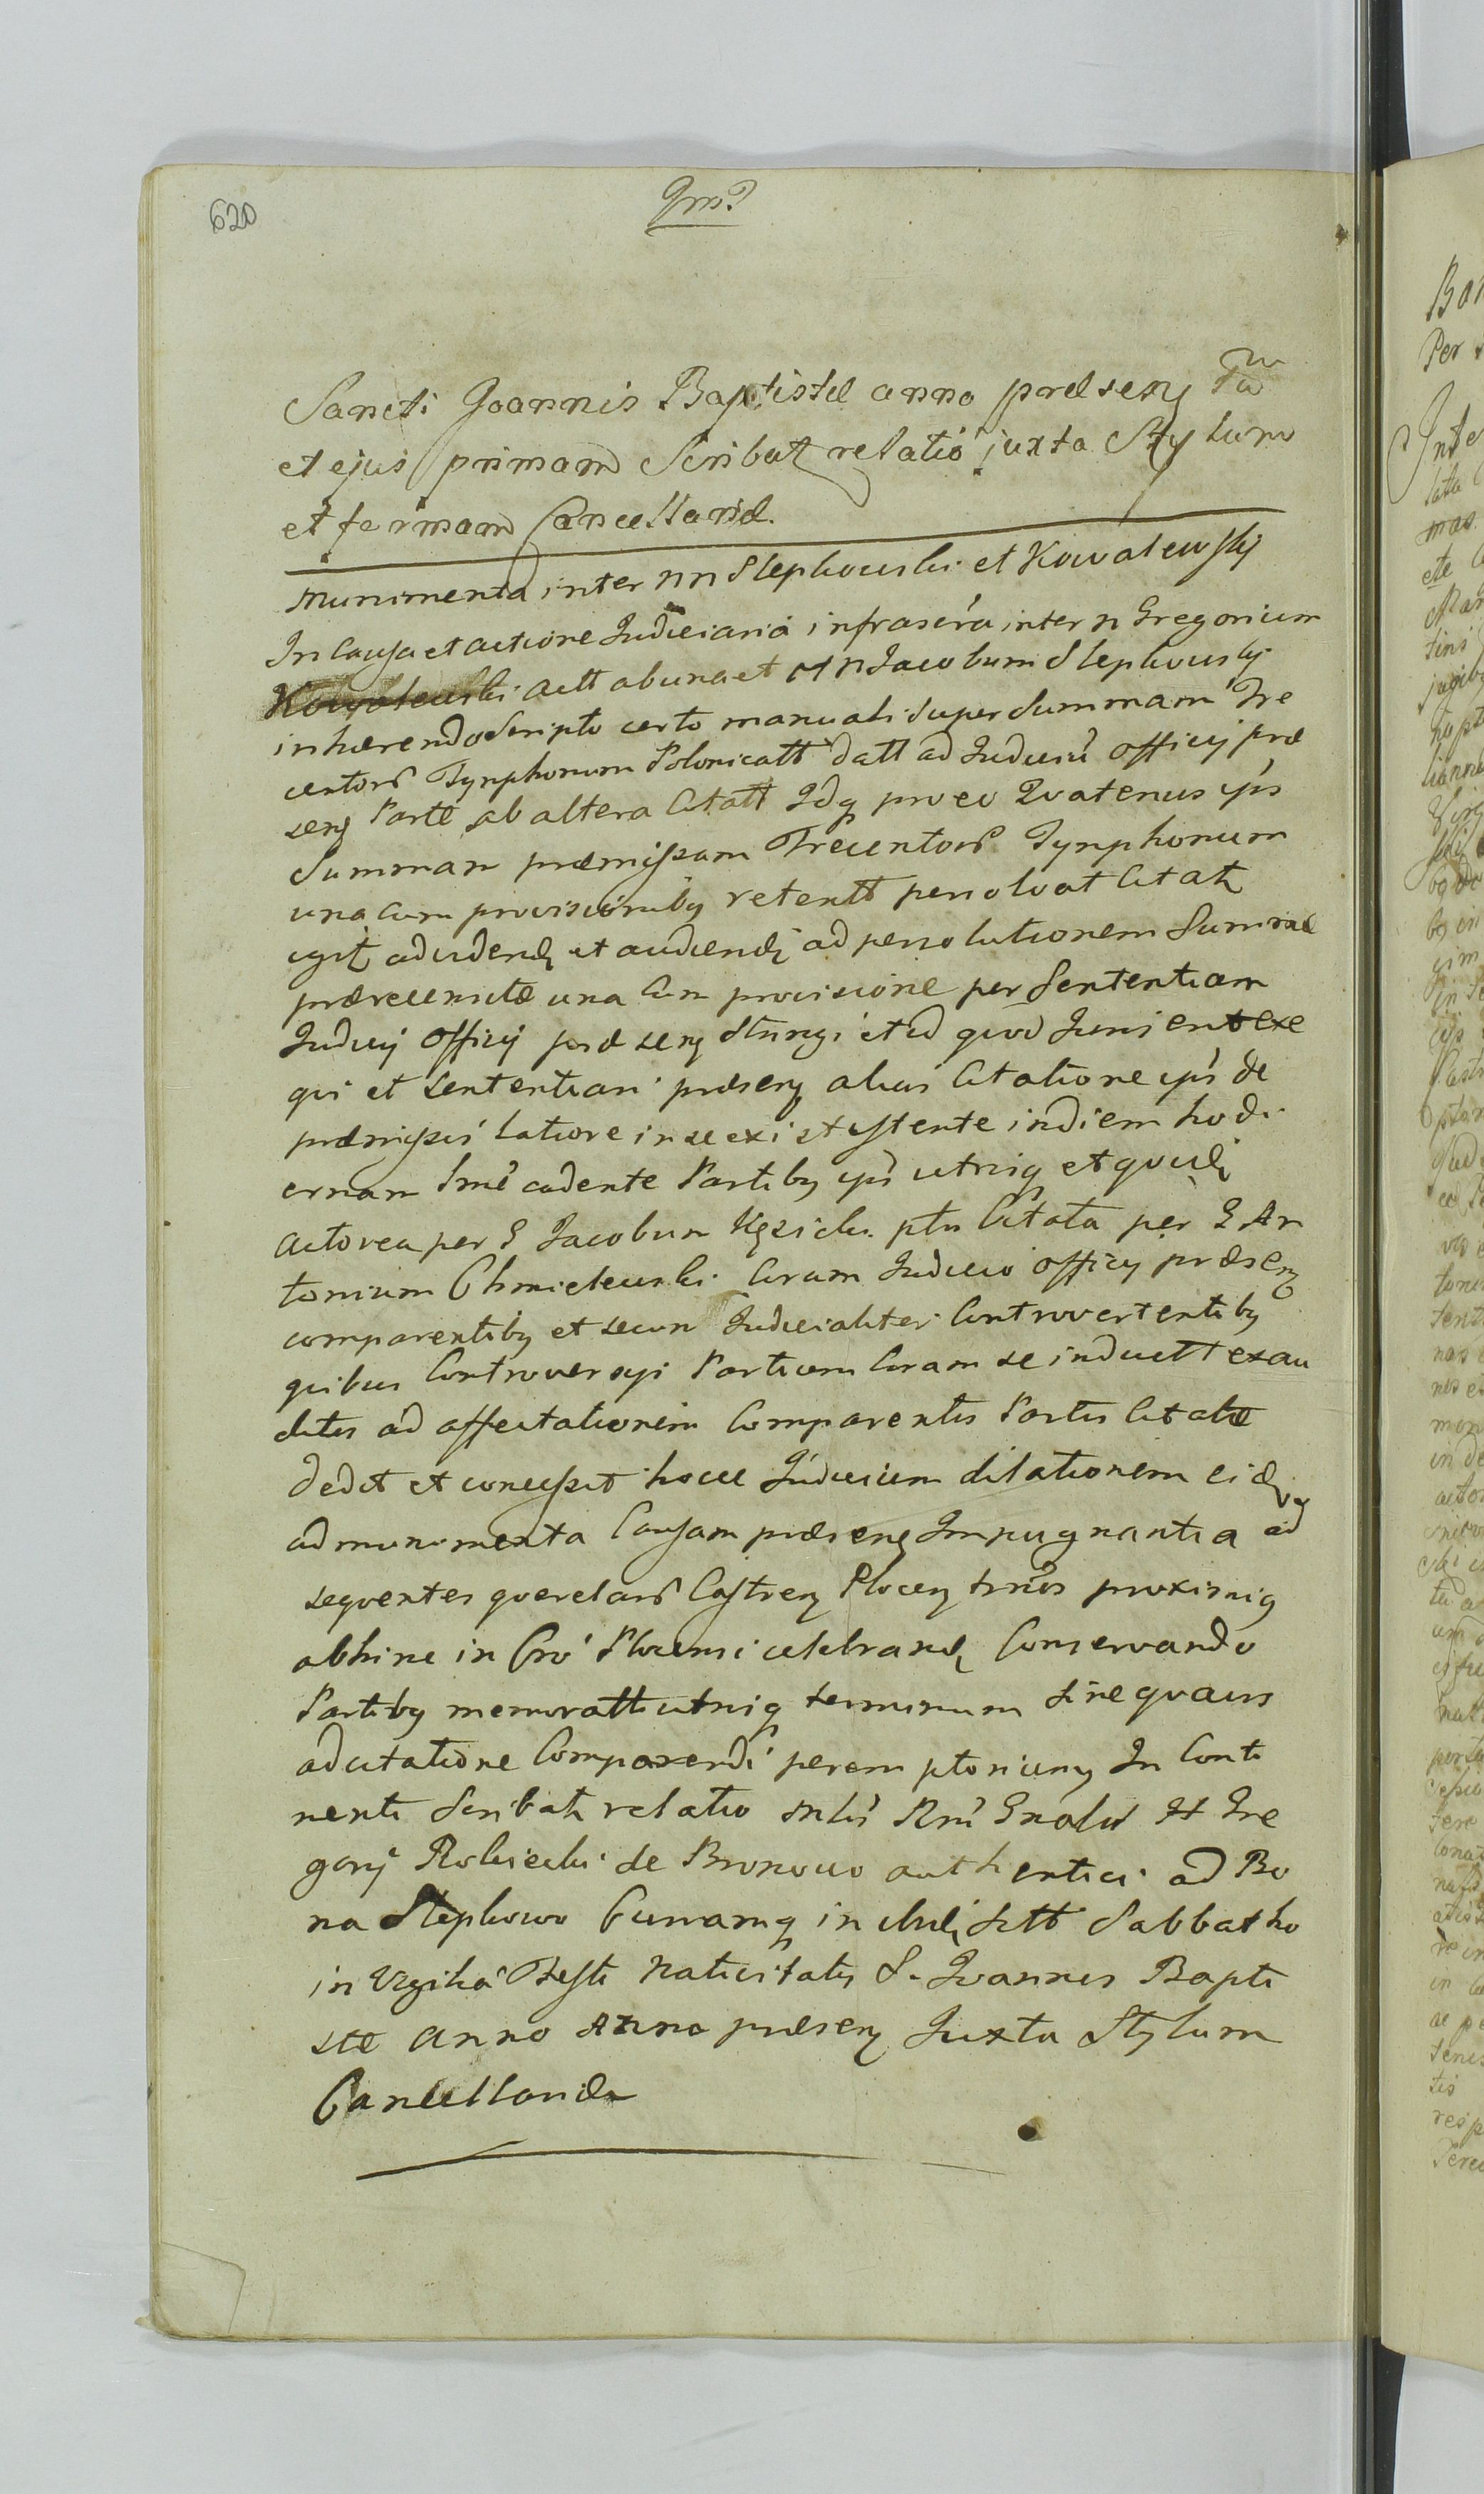 620
Sancti Joannis Baptistæ anno præseñ
et ejus primam Scribat relatió juxta Stylum
et formam Cancellariæ.
Munimenta inter NN Slepkowski et Kowalewskj
In Causa et actione Judiciaria infrascra inter N Gregorium
Kowalewski actt ab una et N Jacobum Slepkowskj
inhærendo Scripto certo manuali super Summam Tre
centorū Tynphonum Polonicall datt ad Judiciū officij præ
señ Parte ab altera Citatt Idq pro eo Quatenus ips
Summam præmissam Trecentorū Tynphonum
una cum provisionibꝫ retentt persolvat Citatꝫ
ad videndꝫ et audiendꝫ ad persolutionem Summæ
prærecensitæ una cum provisione per Sententiam
Judicij Officij præseñ Stringi et id quod Juris erit exe
qui et Sententiari præseñ alias Citatione ips de
præmissis latiore in se existystente in diem hodi
ernam cadente Partibꝫ ips utrisq et quidꝫ
actorea per G Jacobum ptm Citata per G An
tonium Chmielewski Coram Judicio officij præseñ
comparentibꝫ et secum Judicialiter Controvertentibꝫ
quibus Controversys Partium Coram se inductt exau
ditis ad affectationem Comparentis Partis Citatæ
dedit et concessit hocce Judicium dilationem eidꝫ
ad munimenta Causam præseñ Impugnantia ad
sequentes querelarū Castreñ Ploceñ tmos proximiq
abhinc in Cro Plocensi celebrandꝫ Conservando
Partibꝫ memoratt utrisq terminum sine quavis
adcitatione Comparendi peremptorium In Conti
nenti Scribatꝫ relatio
gorij Rokicki de Bronowo authentici ad Bo
na Slepkowo in sitt Sabbatho
in Vigilia Festi Nativitatis S. Joannis Bapti
stæ anno Anno præseñ Juxta Stylum
Cancellariæ